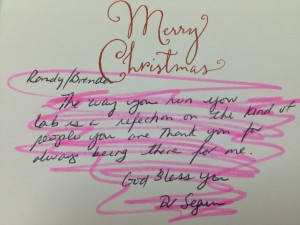 Merry
Christmas
Randy/Brenda
The way you run your
lab is a reflection on the kind of
people you are thank you for
always being there for me.
God Bless you
Dr Segun